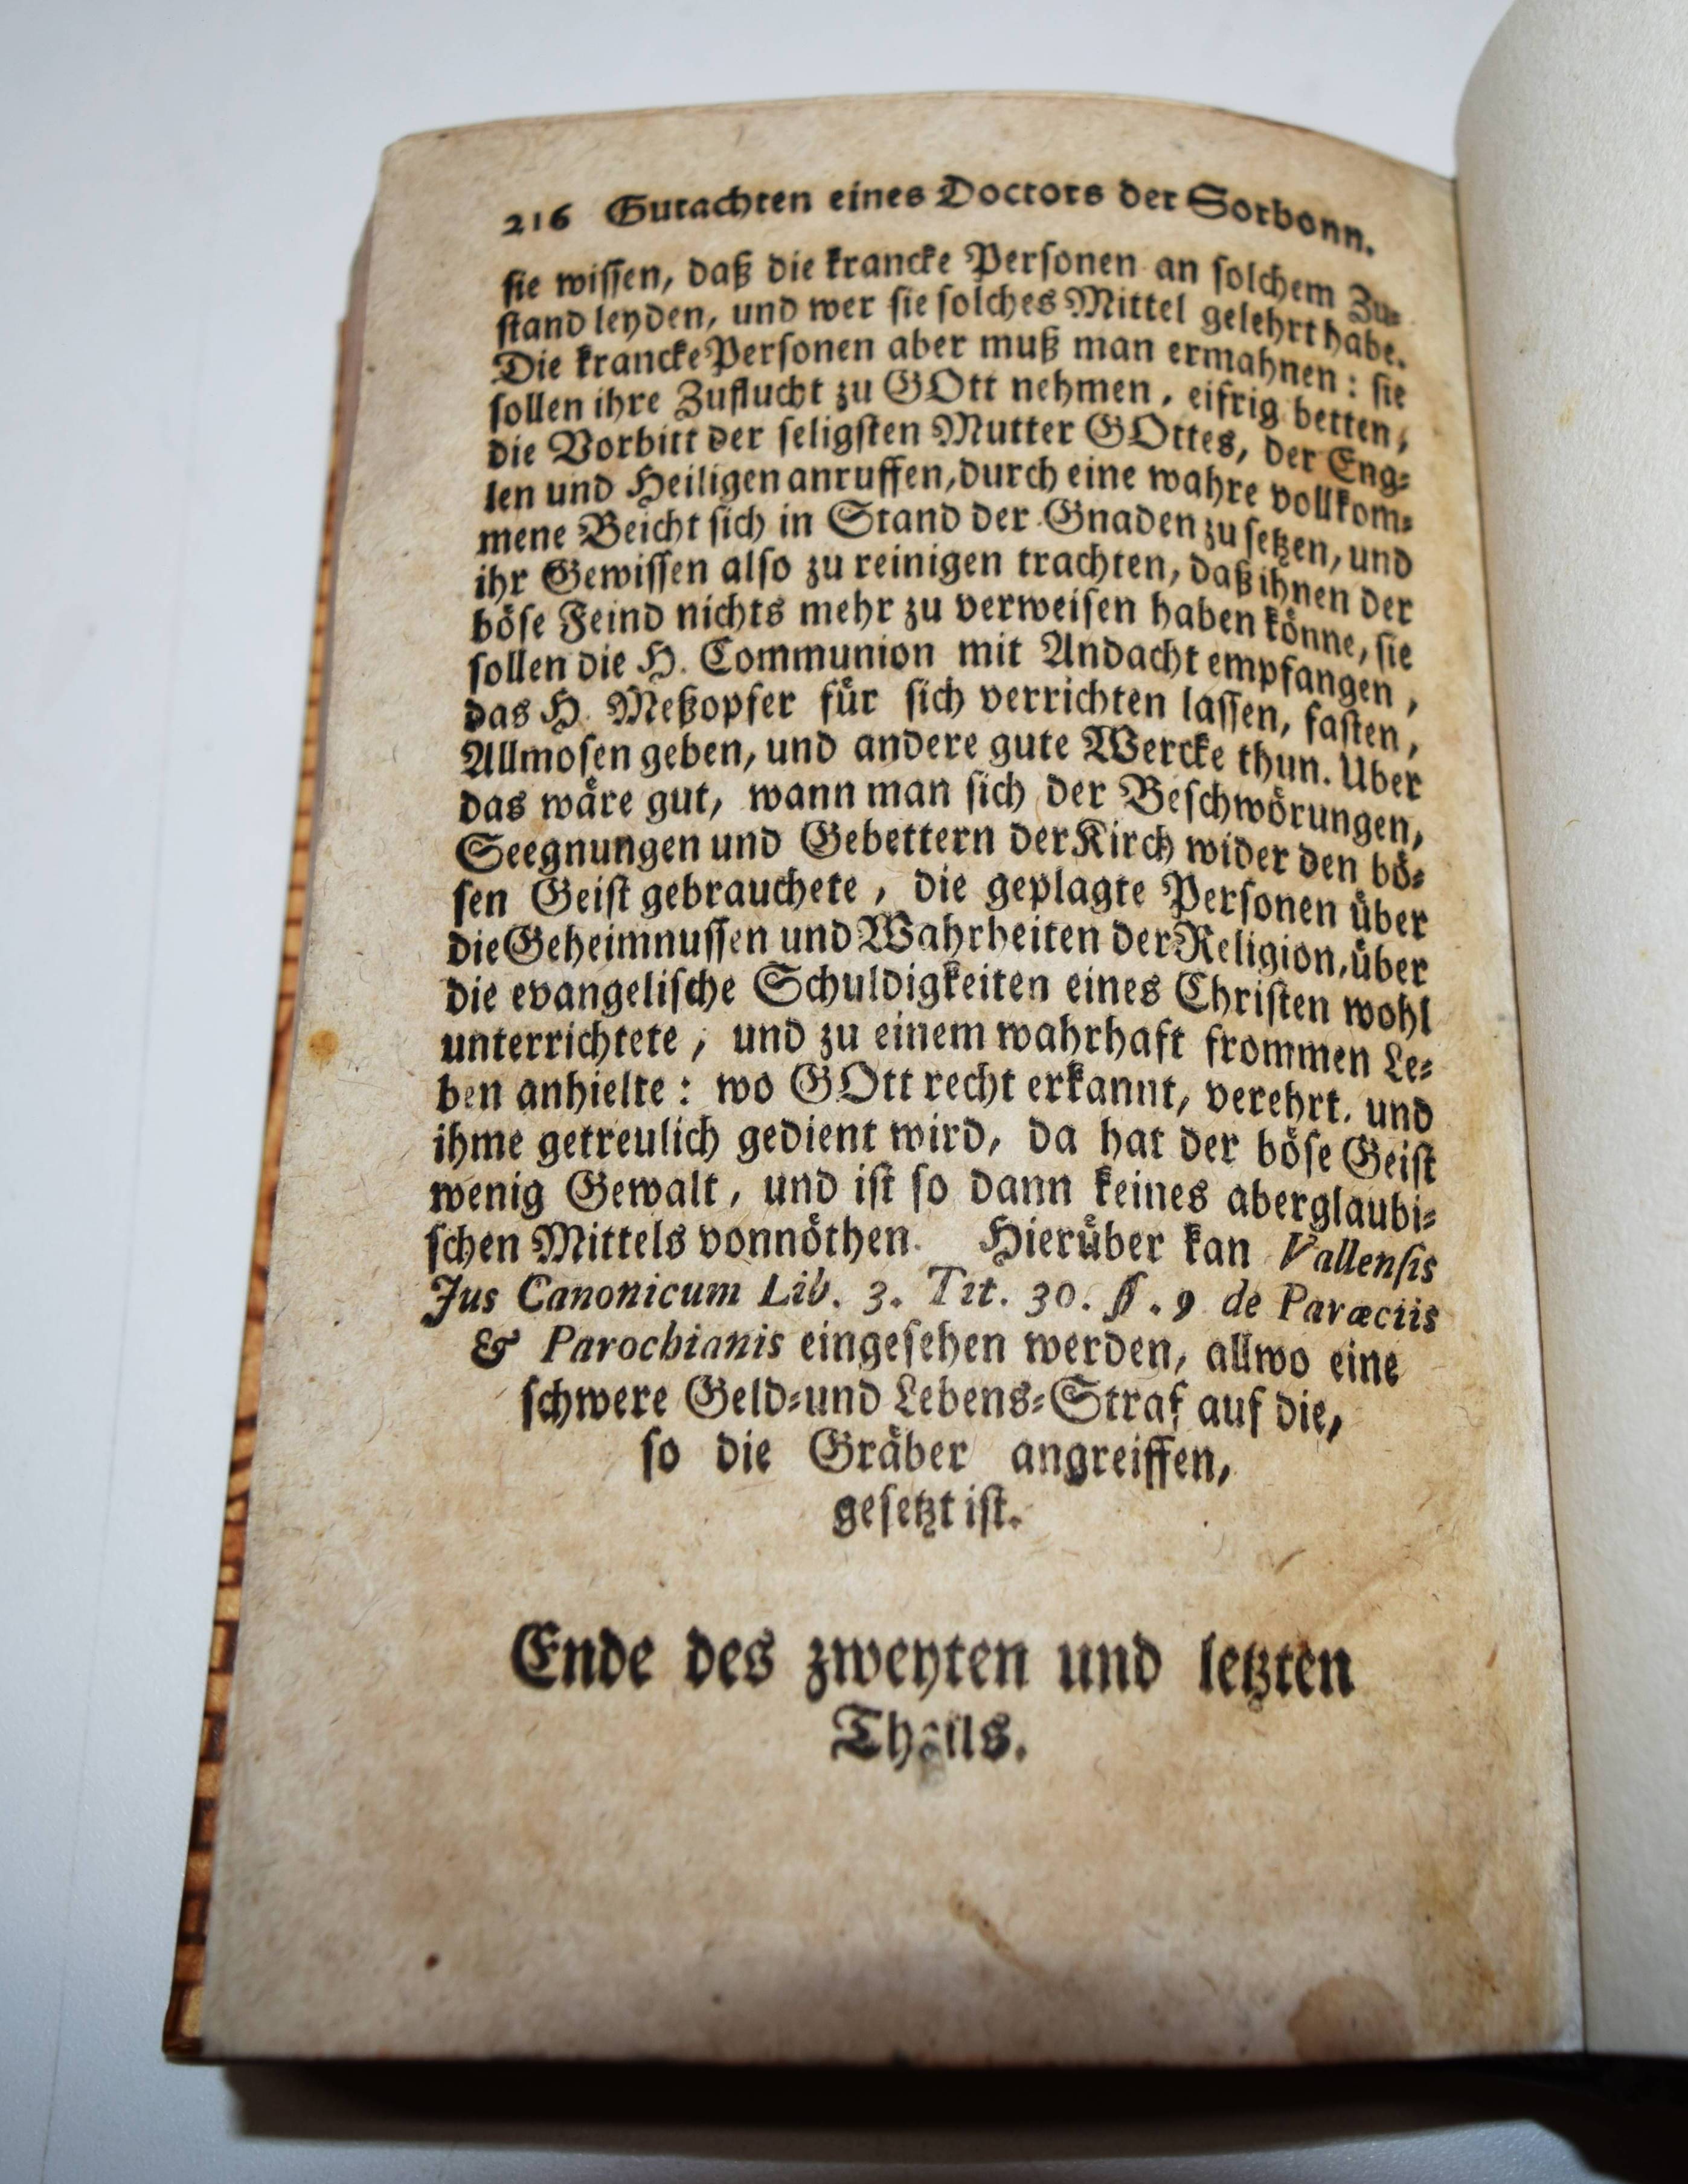 216 Gutachten eines Doctors der Sorbonn.
sie wissen, daß die krancke Personen an solchem Zu-
stand leyden, und wer sie solches Mittel gelehrt habe.
Die krancke Personen aber muß man ermahnen: sie
sollen ihre Zuflucht zu GOtt nehmen, eifrig betten,
die Vorbitt der seligsten Mutter GOttes, der Eng-
len und Heiligen anruffen, durch eine wahre vollkom-
mene Beicht sich in Stand der Gnaden zu setzen, und
ihr Gewissen also zu reinigen trachten, daß ihnen der
böse Feind nichts mehr zu verweisen haben könne, sie
sollen die H. Communion mit Andacht empfangen,
das H. Meßopfer für sich verrichten lassen, fasten,
Allmosen geben, und andere gute Wercke thun. Uber
das wäre gut, wann man sich der Beschwörungen,
Seegnungen und Gebettern der Kirch wider den bö-
sen Geist gebrauchete, die geplagte Personen über
die Geheimnussen und Wahrheiten der Religion, über
die evangelische Schuldigkeiten eines Christen wohl
unterrichtete, und zu einem wahrhaft frommen Le-
ben anhielte: wo GOtt recht erkannt, verehrt, und
ihme getreulich gedient wird, da hat der böse Geist
wenig Gewalt, und ist so dann keines aberglaubi-
schen Mittels vonnöthen. Hierüber kan Vallensis
Jus Canonicum Lib. 3. Tit. 30. §. 9 de Paræciis
& Parochianis eingesehen werden, allwo eine
schwere Geld-und Lebens-Straf auf die,
so die Gräber angreiffen,
gesetzt ist.
Ende des zweyten und letzten
Theils.